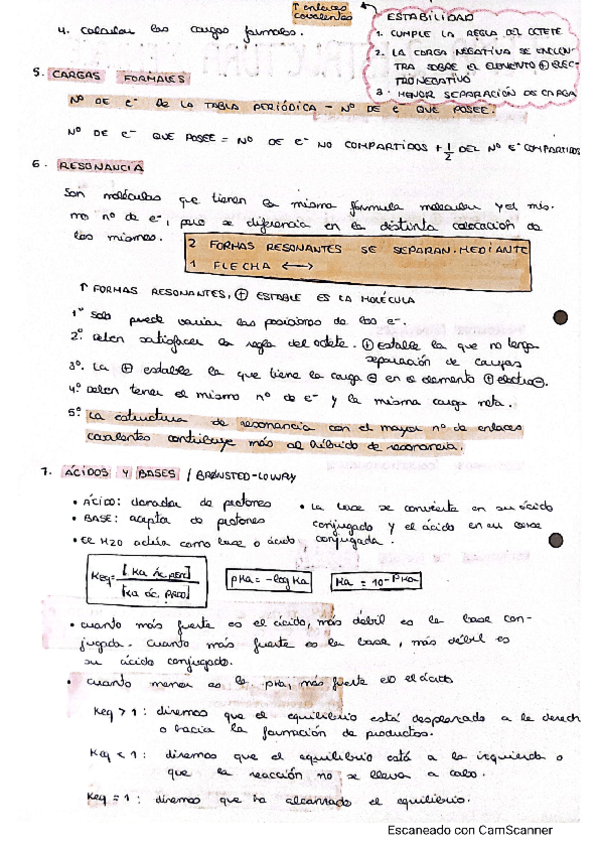 ↑ enlaces
covalentes
4. Calcular las cargas formales.
ESTABILIDAD
1. CUMPLE LA REGLA DEL OCTETE
2. LA CARGA NEGATIVA SE ENCUEN-
TRA SOBRE EL ELEMENTO ⊕ ELEC-
TRONEGATIVO
3. MENOR SEPARACIÓN DE CARGA
5. CARGAS FORMALES
Nº DE e- DE LA TABLA PERIÓDICA - Nº DE e- QUE POSEE.
Nº DE e- QUE POSEE = Nº DE e- NO COMPARTIDOS + 1/2 DEL Nº E- COMPARTIDOS
6. RESONANCIA
Son moléculas que tienen la misma fórmula molecular y el mis-
mo nº de e-, pero se diferencia en la distinta colocación de
los mismos.
2 FORMAS RESONANTES SE SEPARAN MEDIANTE
1 FLECHA ⟷
↑ FORMAS RESONANTES, ⊕ ESTABLE ES LA MOLÉCULA
1º Solo puede variar las posiciones de los e-.
2º. Deben satisfacer la regla del octete. ⊕ estable la que no tenga
separación de cargas
3º. La ⊕ estable la que tiene la carga ⊖ en el elemento ⊕ electro⊖.
4º. Deben tener el mismo nº de e- y la misma carga neta.
5º. La estructura de resonancia con el mayor nº de enlaces
covalentes contribuye más al híbrido de resonancia.
7. ÁCIDOS Y BASES / BRØNSTED-LOWRY
• ÁCIDO: donador de protones
• BASE: acepta de protones
• EL H2O actúa como base o ácido
• La base se convierte en su ácido
conjugado y el ácido en su base
conjugada.
Keq = [Ka ác. REAC] / [Ka ác. PROD]
pKa = -log Ka
Ka = 10-pKa
• cuanto más fuerte es el ácido, más débil es la base con-
jugada. Cuanto más fuerte es la base, más débil es
su ácido conjugado.
• Cuanto menor es la pKa, más fuerte es el ácido
Keq > 1: diremos que el equilibrio está desplazado a la derech
o hacia la formación de productos.
Keq < 1: diremos que el equilibrio está a la izquierda o
que la reacción no se lleva a cabo.
Keq = 1: diremos que ha alcanzado el equilibrio.
Escaneado con CamScanner